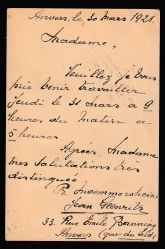 Anvers, le 30 mars 1921
Madame,
Veuillez je vous
prie venir travailler
jeudi le 31 mars à 9
heures du matin et
5 heures
Agréez, madame
mes salutations très
distinguées
Jean
33. Rue Emile Banning
Anvers (quar. du Sud)